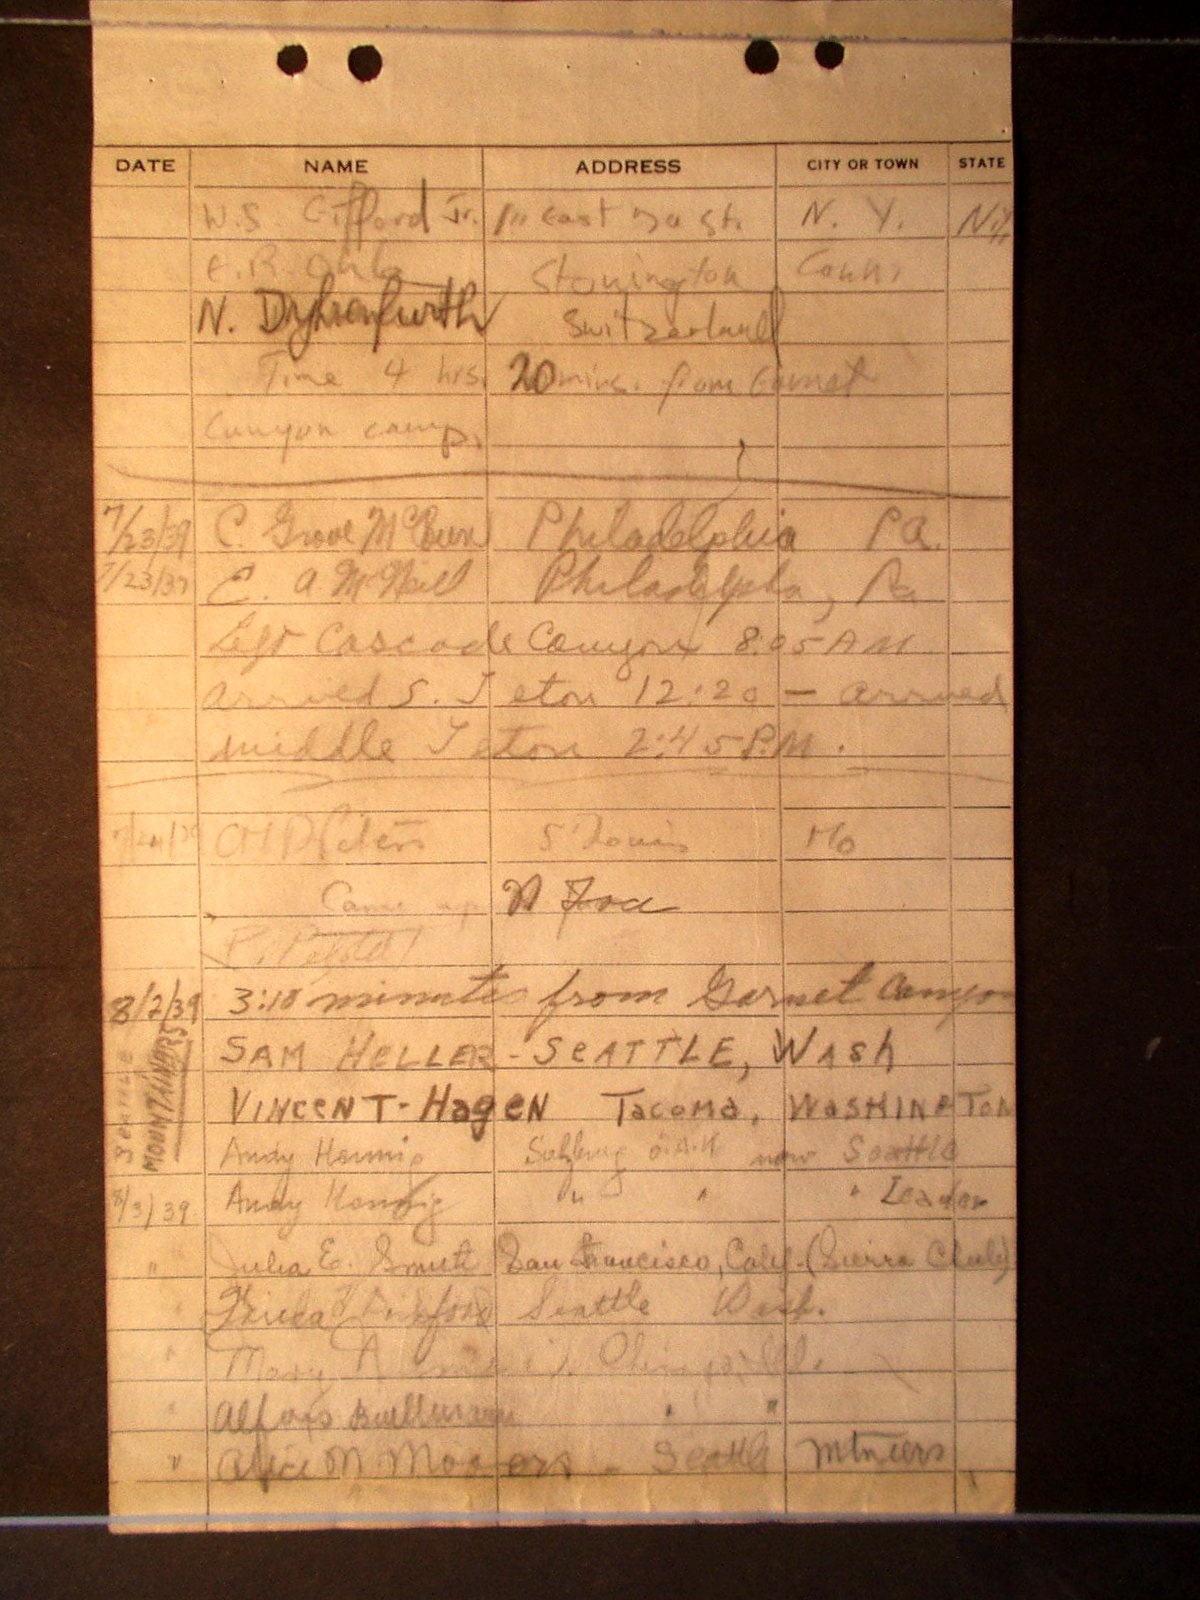 DATE NAME ADDRESS CITY OR TOWN STATE
W.S. Gifford Jr. East 70 st. N. Y. N.Y.
E. R. Stonington Conn.
N. Dyhrenfurth Switzerland
Time 4 hrs. 20 mins. from Garnet
Canyon camp.
7/23/39 C. Grove Philadelphia Pa.
7/23/39 E. A. McNeill Philadelpha, Pa
Left Cascade Canyon 8:05 AM
arrived S. Teton 12:20 — arrived
middle Teton 2:45 P.M.
S' Louis Mo
Came up N
P. Petzoldt
8/2/39 3:10 minutes from Garnet Canyon
SEATTLE MOUNTAINERS
SAM HELLER - SEATTLE, WASH
VINCENT - HAGEN TACOMA, WASHINGTON
Andy Hennig now Seattle
8/3/39 Andy Hennig " " " Leader
" Julia E. San Francisco, Calif. (Sierra Club)
" Seattle Wash.
" Mary A.
" Alfons " "
" Alice M - Seattle Mtneers